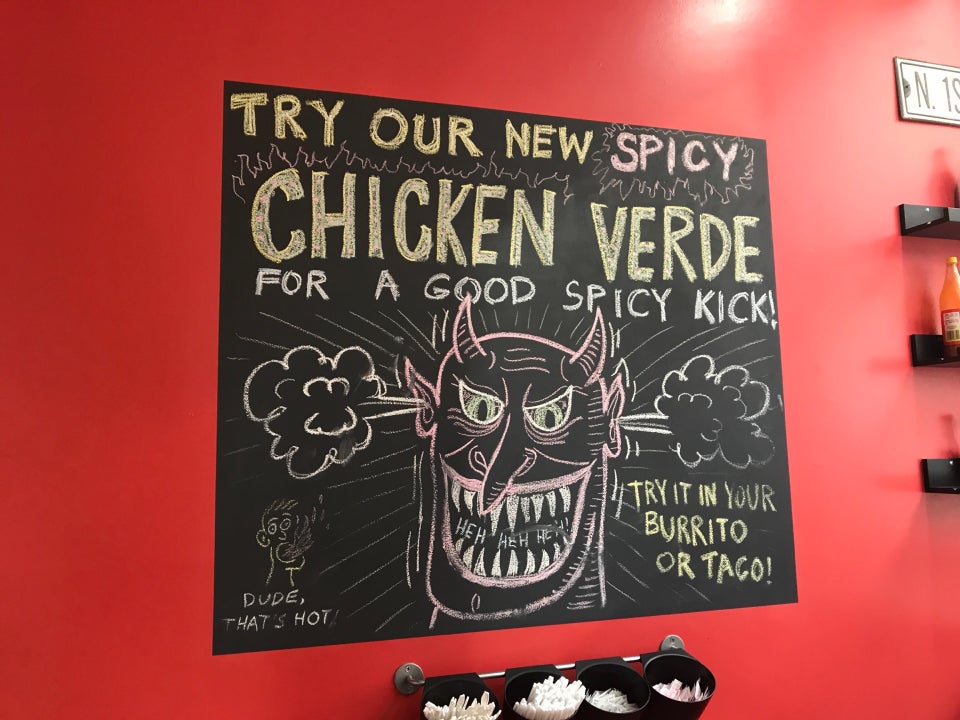 TRY OUR NEW SPICY
CHICKEN VERDE
FOR A GOOD SPICY KICK!
HEH HEH HEH!
TRY IT IN YOUR
BURRITO
OR TACO!
DUDE,
THAT'S HOT!
N. 1S